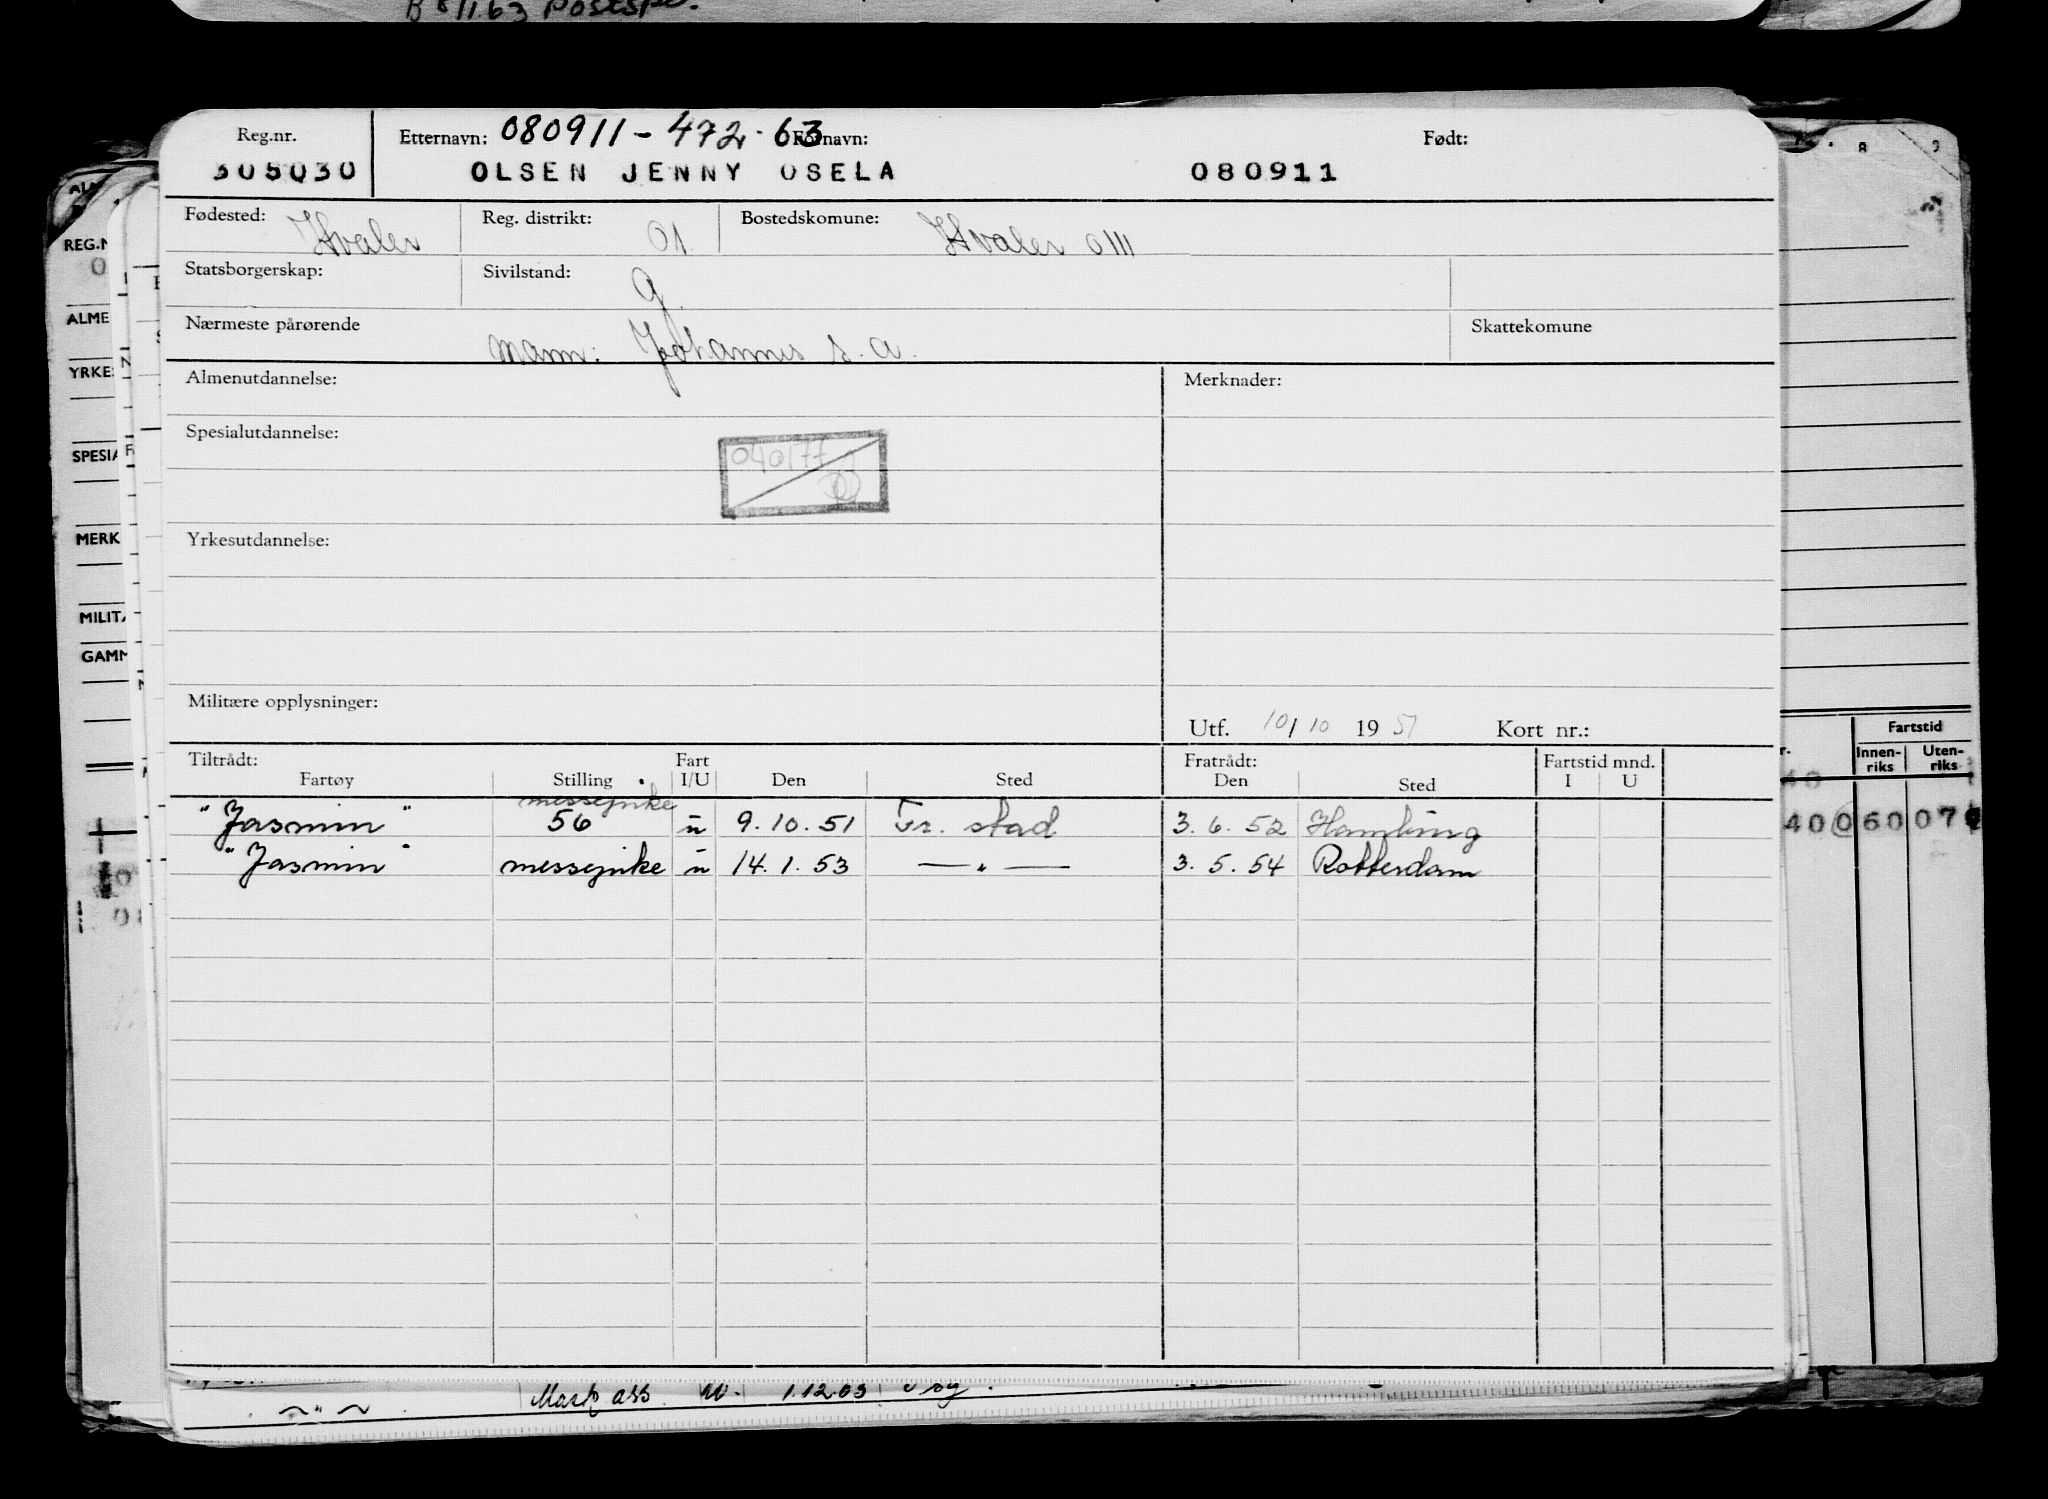 B 8/11.63
Reg.nr. Etternavn: 080911-472-63 Fornavn: Født:
305030 OLSEN JENNY OSELA 080911
Fødested: Hvaler Reg. distrikt: 01 Bostedskomune: Hvaler 0111
Statsborgerskap: Sivilstand: g.
Nærmeste pårørende mann: Johannes s. a. Skattekomune
Almenutdannelse: Merknader:
Spesialutdannelse:
040177
Yrkesutdannelse:
Militære opplysninger:
Utf. 10/10 1951 Kort nr.:
Tiltrådt: Fart Fratrådt: Fartstid mnd.
Fartøy Stilling I/U Den Sted Den Sted I U
messepike
"Jasmin" 56 u 9.10.51 Fr. stad 3.6.52 Hamburg
"Jasmin" messepike u 14.1.53 — " — 3.5.54 Rotterdam
1.12.63
REG.N
ALME
YRKES
SPESIA
MERK
MILITÆ
GAMM
Fartstid
Innen-riks Uten-riks
40 0 60 07